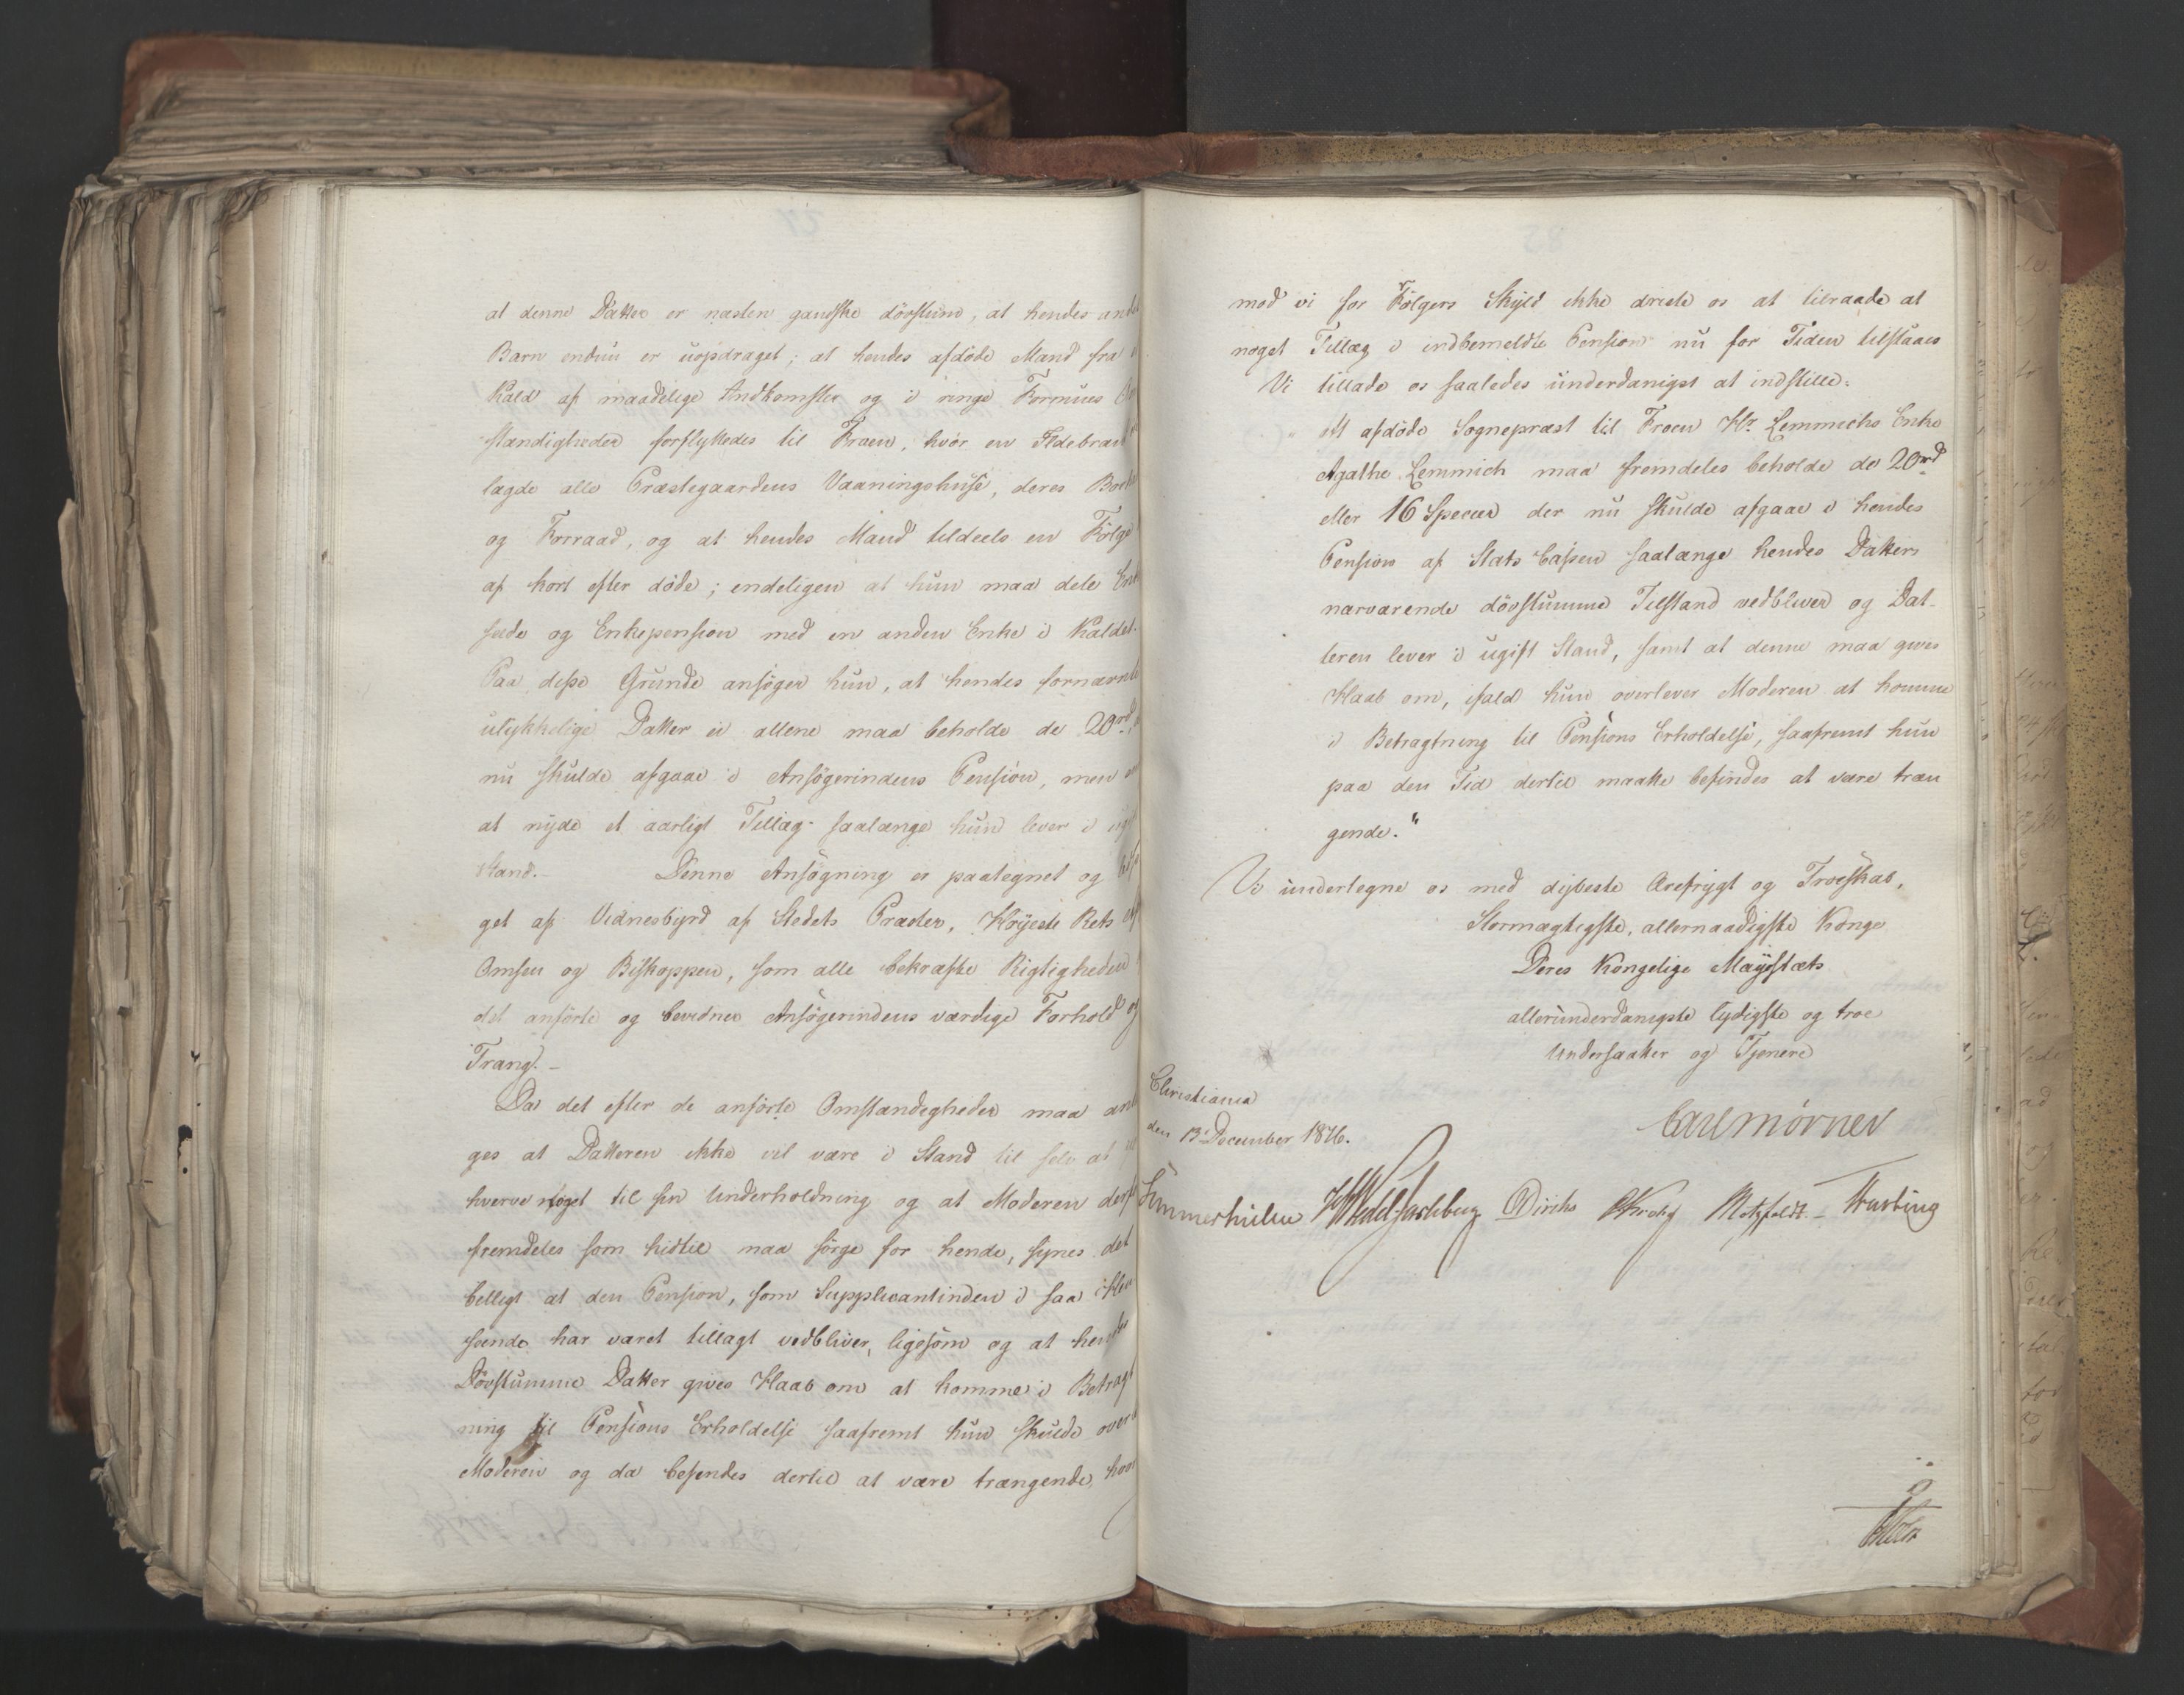 at denne Datter er næsten gandske døvstum, at hendes andet
Barn endnu er uopdraget; at hendes afdøde Mand fra
Kald af maadelige Indkomster og i ringe Formues
stændigheder forflyttedes til Froen, hvor en Ildebrand
lagde alle Præstegaardens Vaaningshuse, deres
og Forraad, og at hendes Mand tildeels en Følge
af kort efter døde; endeligen at hun maa dele
sæde og Enkepension med en anden Enke i Kaldet.
Paa disse Grunde ansøger hun, at hendes fornævnte
ulykkelige Datter ei allene maa beholde de 20rd,
nu skulde afgaae i Ansøgerindens Pension, men
at nyde et aarligt Tillæg saalænge hun lever i
Stand.- Denne Ansøgning er paategnet og
get af Vidnesbyrd af Stedets Præster, Høyeste Rets
Omsen og Biskoppen, som alle bekræfte Rigtigheden
det anførte og bevidner Ansøgerindens værdige Forhold og
Trang.-
Da det efter de anførte Omstændigheder maa
ges at Datteren ikke vil være i Stand til selv at
hverve noget til sin Underholdning og at Moderen
fremdeles som hidtil maa sørge for hende, synes det
billigt at den Pension, som Supplicantinden i saa
seende har været tillagt vedbliver, ligesom og at hendes
Døvstumme Datter gives Haab om at komme i Betragt
ning til Pensions Erholdelse saafremt hun skulde
Moderen og da befindes dertil at være trængende,
mod vi for Følgers Skyld ikke driste os at tilraade at
noget Tillæg i indbemeldte Pension nu for Tiden tilstaaes
Vi tillade os saaledes underdanigst at indstille:
" At afdøde Sognepræst til Froen Hr. Lemmichs Enke
Agathe Lemmich maa fremdeles beholde de 20rd
eller 16 Specier der nu skulde afgaae i hendes
Pension af Stats Cassen saalænge hendes Datters
nærværende døvstumme Tilstand vedbliver og Dat-
teren lever i ugift Stand, samt at denne maa gives
Haab om, ifald hun overlever Moderen at komme
i Betragtning til Pensions Erholdelse, saafremt hun
paa den Tid dertil maatte befindes at være træn
gende."
Vi undertegne os med dybeste Ærefrygt og Troeskab,
Stormægtigste, allernaadigste Konge
Deres Kongelige Mayestæts
allerunderdanigste lydigste og troe
Undersaatter og Tjenere
Christiania
den 13 December 1816.
Carl Mörner
Sommerhielm HWedel-Jarlsberg Diriks PKrohg Motzfeldt- Hartung